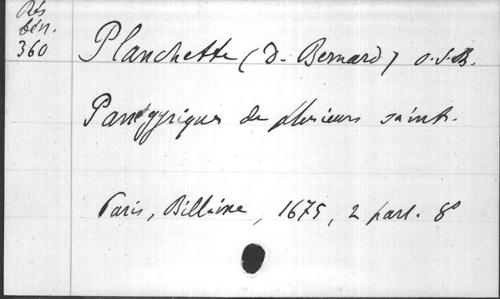 Rés
bén.
360
Planchette (D. Bernard) O.S.B.
Panégyriques de plusieurs saints.
Paris, Billaine, 1675, 2 part. 8°